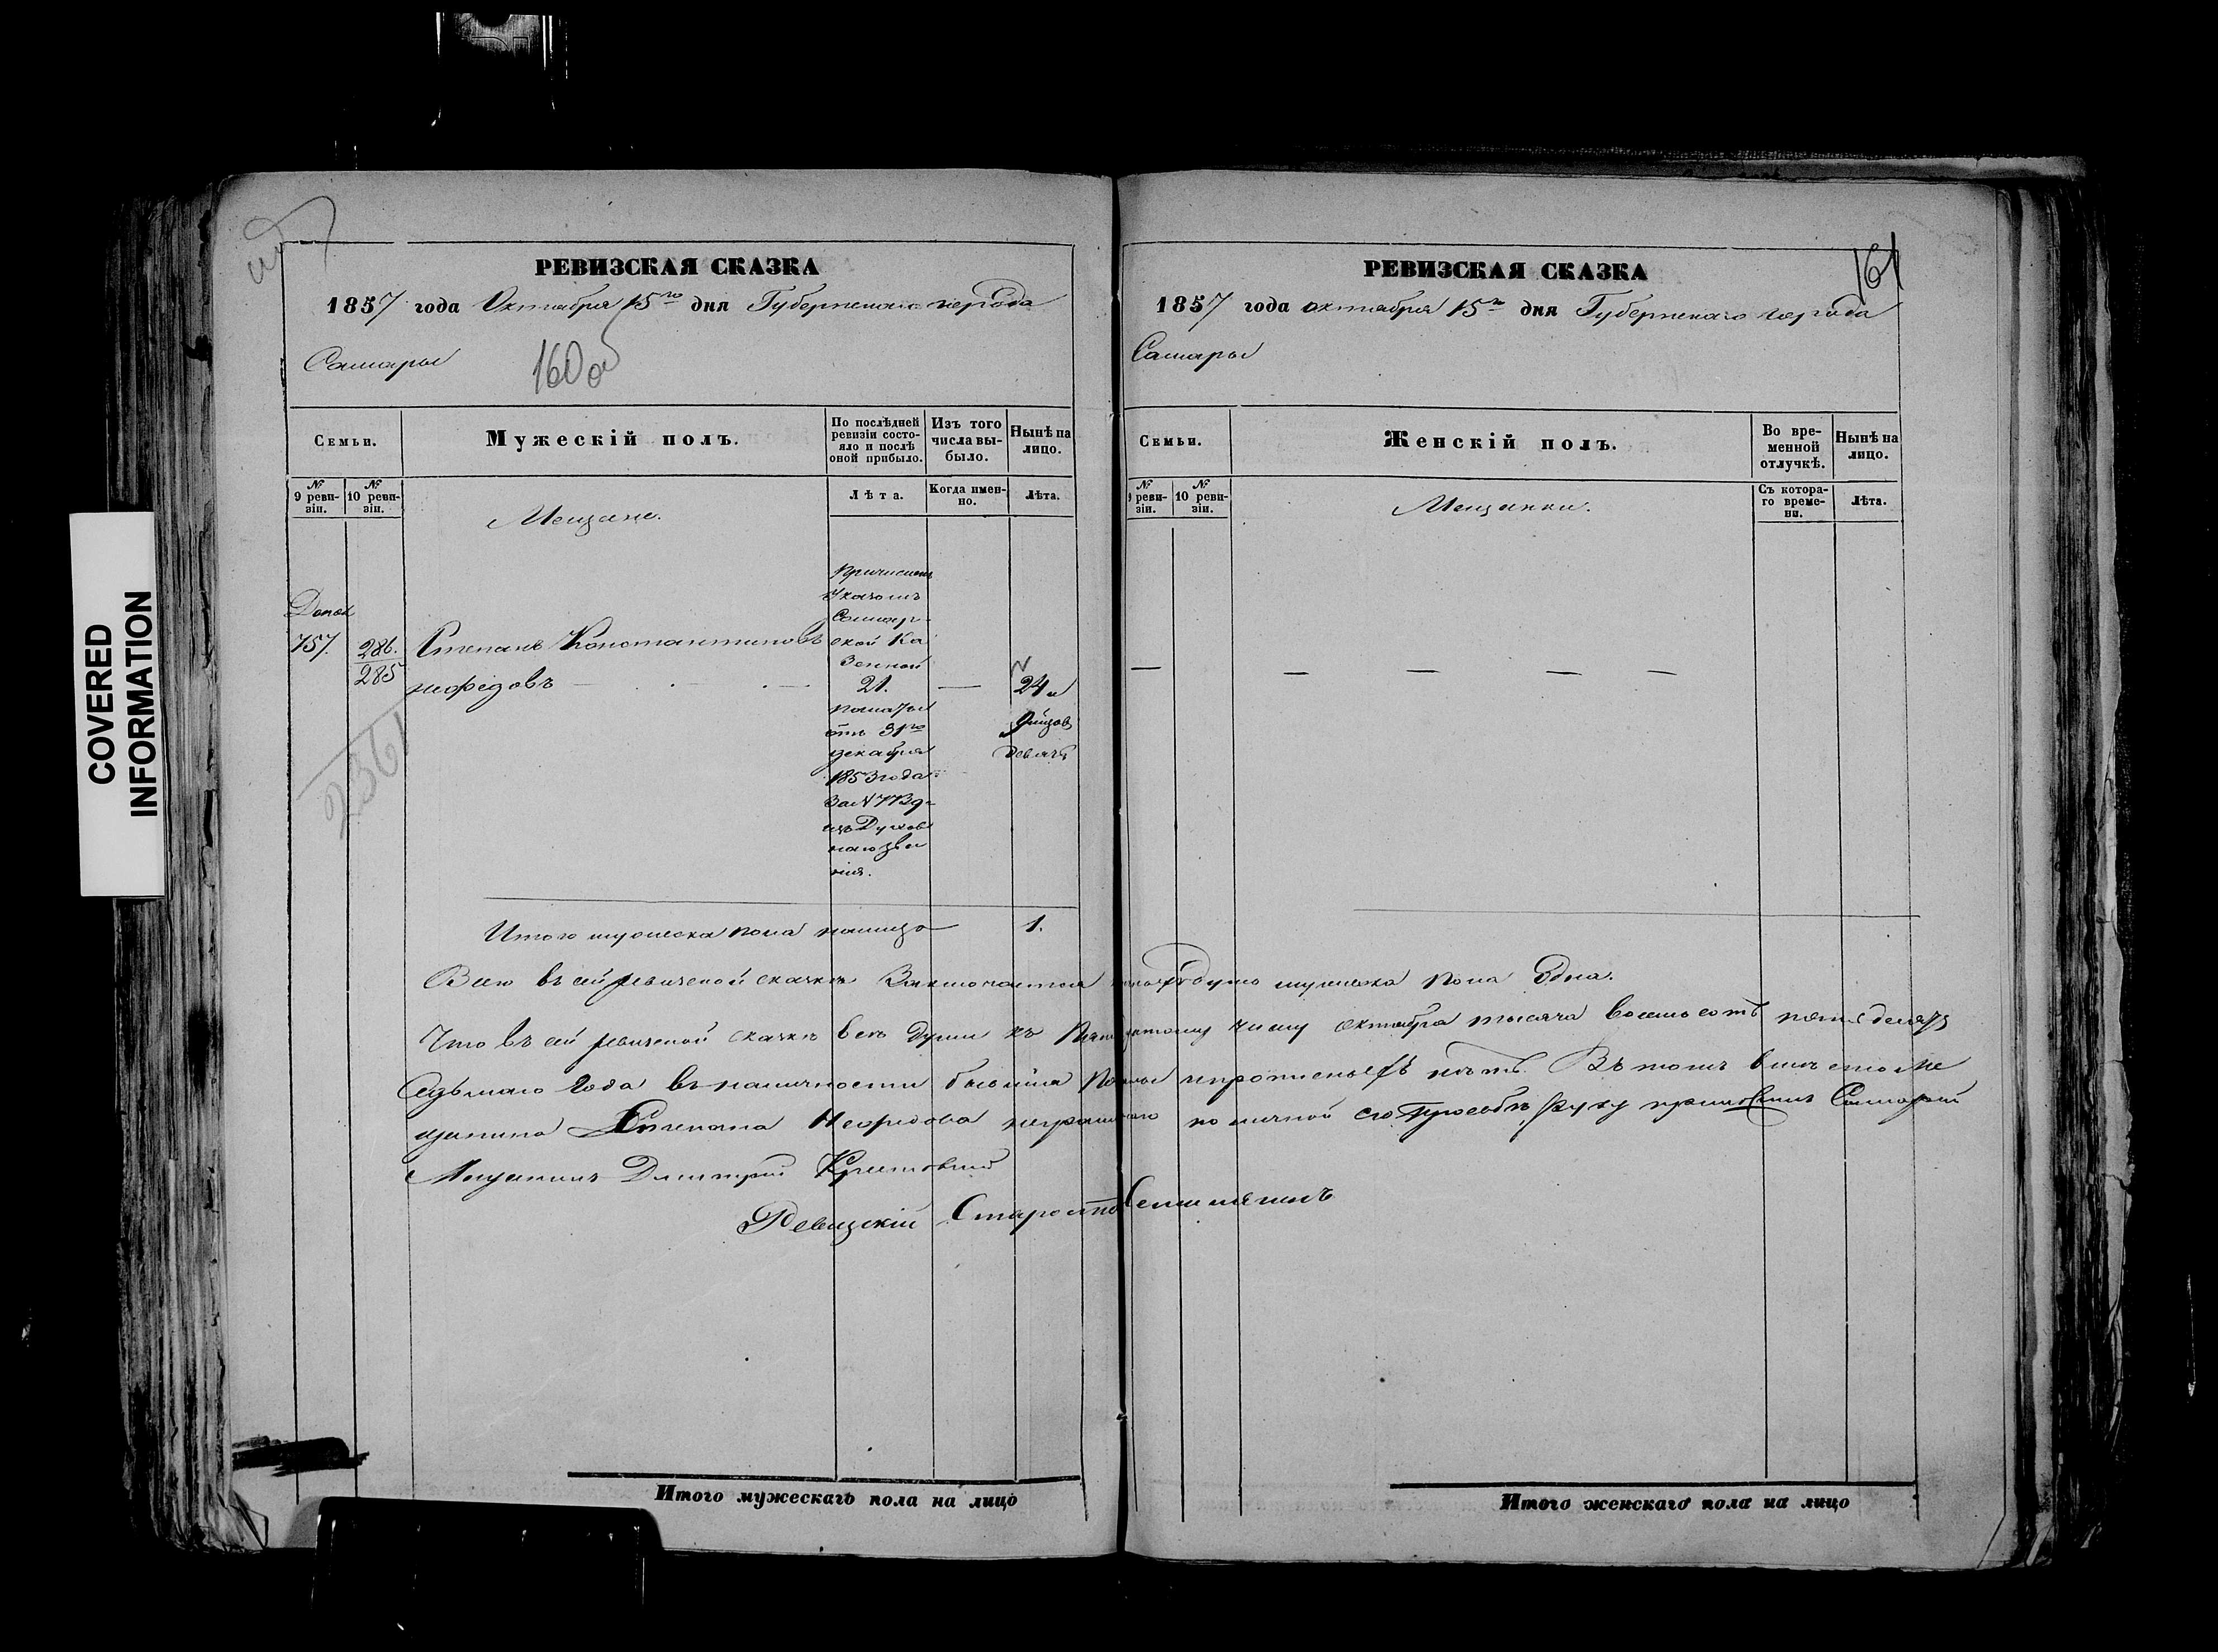 COVERED
INFORMATION
РЕВИЗСКАЯ СКАЗКА
1857 года Октября 15го дня Губернскаго города
Самары
160об
Семьи.
Мужескій полъ.
По послѣдней ревизіи состояло и послѣ оной прибыло.
Изъ того числа выбыло.
Нынѣ на лицо.
№ 9 ревизіи.
№ 10 ревизіи.
Лѣта.
Когда именно.
Лѣта.
Мещане.
Допол
757.
286.
285
Степанъ Константиновъ
Нефедовъ
причислен
Указомъ
Самар-
ской Ка
зенной
21.
палаты
отъ 31го
декабря
1853 года
за №
изъ Духов
наго зва
нія.
24
2361
Итого мужеска пола налицо 1.
Всего въ сей ревизской сказкѣ Заключается душъ мужеска пола Одна.
Что въ сей ревизской сказкѣ всѣ души къ Пятнадцатому числу октября тысяча восемь сотъ пятьдесятъ
Седьмаго Года въ наличности бывшія и прописныхъ нѣтъ. Въ томъ вмѣсто Ме
щанина Степана Нефедова неграмотнаго по личной его прозьбѣ руку приложилъ Самарской
Мещанинъ Дмитрій
Ревизскій Староста
Итого мужескаго пола на лицо
РЕВИЗСКАЯ СКАЗКА
161
1857 года октября 15го дня Губернскаго города
Самары
Семьи.
Женскій полъ.
Во временной отлучкѣ.
Нынѣ на лицо.
№ 9 ревизіи.
№ 10 ревизіи.
Съ котораго времени.
Лѣта.
Мещанки.
Итого женскаго пола на лицо